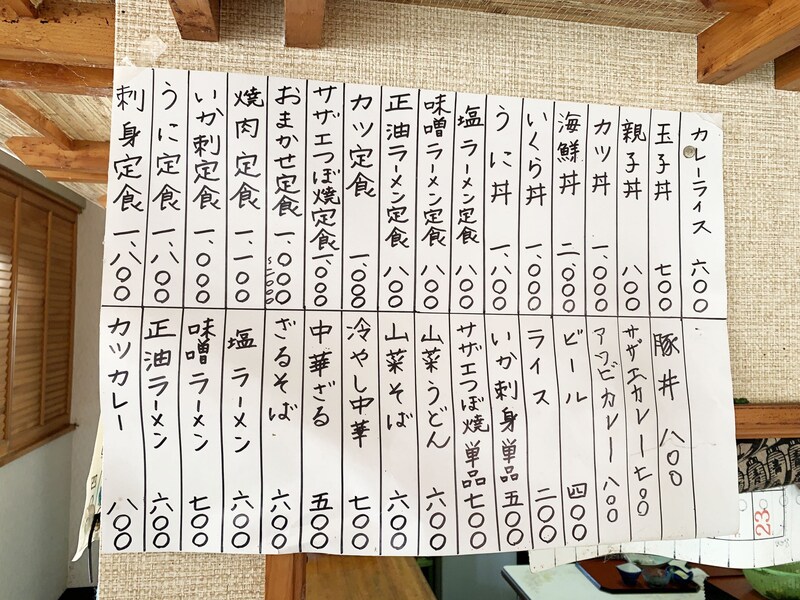 カレーライス 六〇〇
玉子丼 七〇〇
親子丼 八〇〇
カツ丼 一、〇〇〇
海鮮丼 二、〇〇〇
いくら丼 一、〇〇〇
うに丼 一、八〇〇
塩ラーメン定食 八〇〇
味噌ラーメン定食 八〇〇
正油ラーメン定食 八〇〇
カツ定食 一、〇〇〇
サザエつぼ焼定食 一、〇〇〇
おまかせ定食 一、〇〇〇 ~2000
焼肉定食 一、一〇〇
いか刺定食 一、〇〇〇
うに定食 一、八〇〇
刺身定食 一、八〇〇
豚丼 八〇〇
サザエカレー 七〇〇
アワビカレー 八〇〇
ビール 四〇〇
ライス 二〇〇
いか刺身単品 五〇〇
サザエつぼ焼単品 七〇〇
山菜うどん 六〇〇
山菜そば 六〇〇
冷やし中華 七〇〇
中華ざる 五〇〇
ざるそば 六〇〇
塩ラーメン 六〇〇
味噌ラーメン 七〇〇
正油ラーメン 六〇〇
カツカレー 八〇〇
23